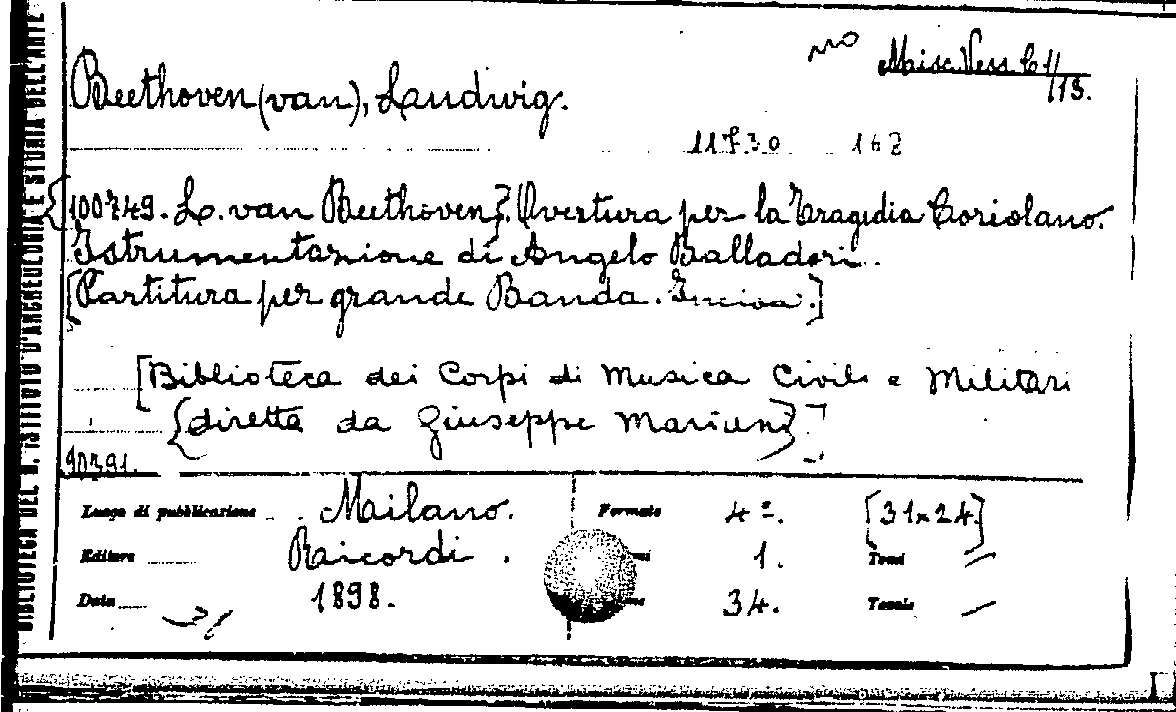 BIBLIOTECA DEL R. ISTITUTO D'ARCHEOLOGIA E STORIA DELL'ARTE
Misc. Vess. C1/13.
Beethoven (van), Ludwig.
11730 162
{100749. L. van Beethoven}. Overtura per la Tragedia Coriolano.
Istrumentazione di Angelo Balladori.
[Partitura per grande Banda. Incisa.]
[Biblioteca dei Corpi di Musica Civili e Militari
{diretta da Giuseppe Mariani}]
90391.
Luogo di pubblicazione Milano. Formato 4º. [31x24]
Editore Ricordi. 1. Tomi —
Data 1898. 34. Tavole —